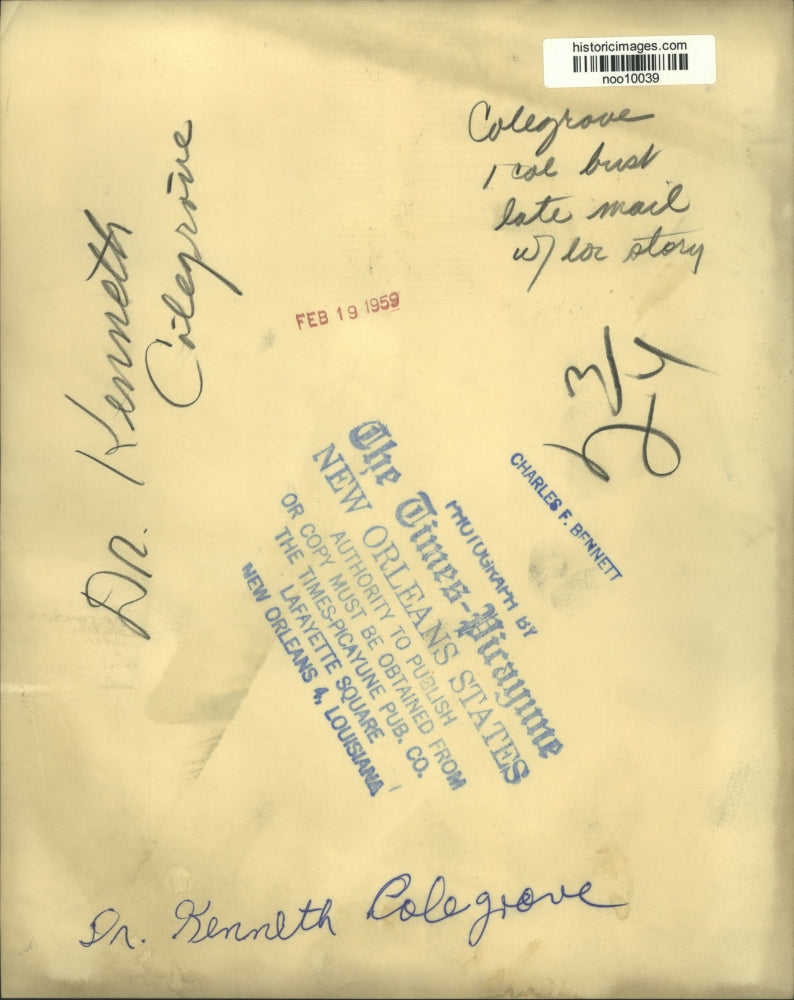 historicimages.com
noo10039
Colegrove
1 col bust
late mail
w/ loc story
Dr. Kenneth
Colegrove
FEB 19 1959
CHARLES F. BENNETT
PHOTOGRAPH BY
The Times-Picayune
NEW ORLEANS STATES
AUTHORITY TO PUBLISH
OR COPY MUST BE OBTAINED FROM
THE TIMES-PICAYUNE PUB. CO.
LAFAYETTE SQUARE
NEW ORLEANS 4, LOUISIANA
Dr. Kenneth Colegrove